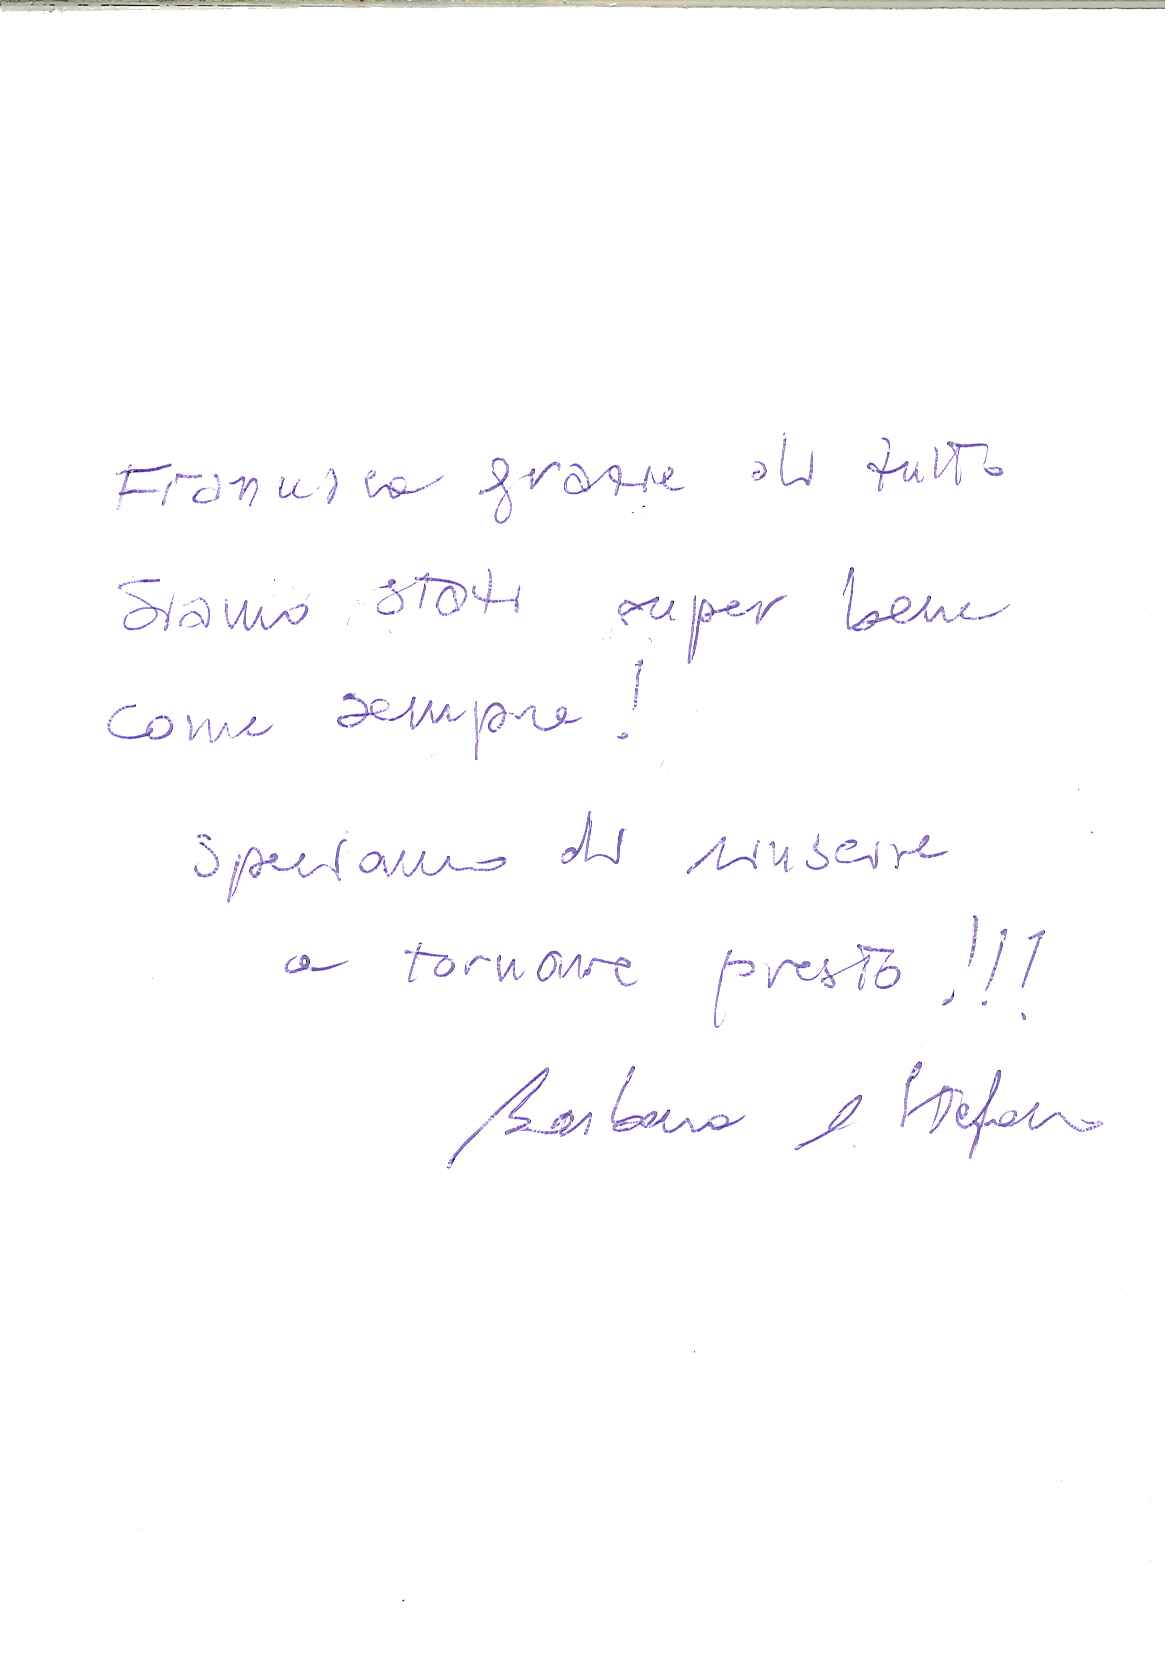 Francesca grazie di tutto
Siamo stati super bene
come sempre!
Speriamo di riuscire
a tornare presto!!!
Barbara e Stefano